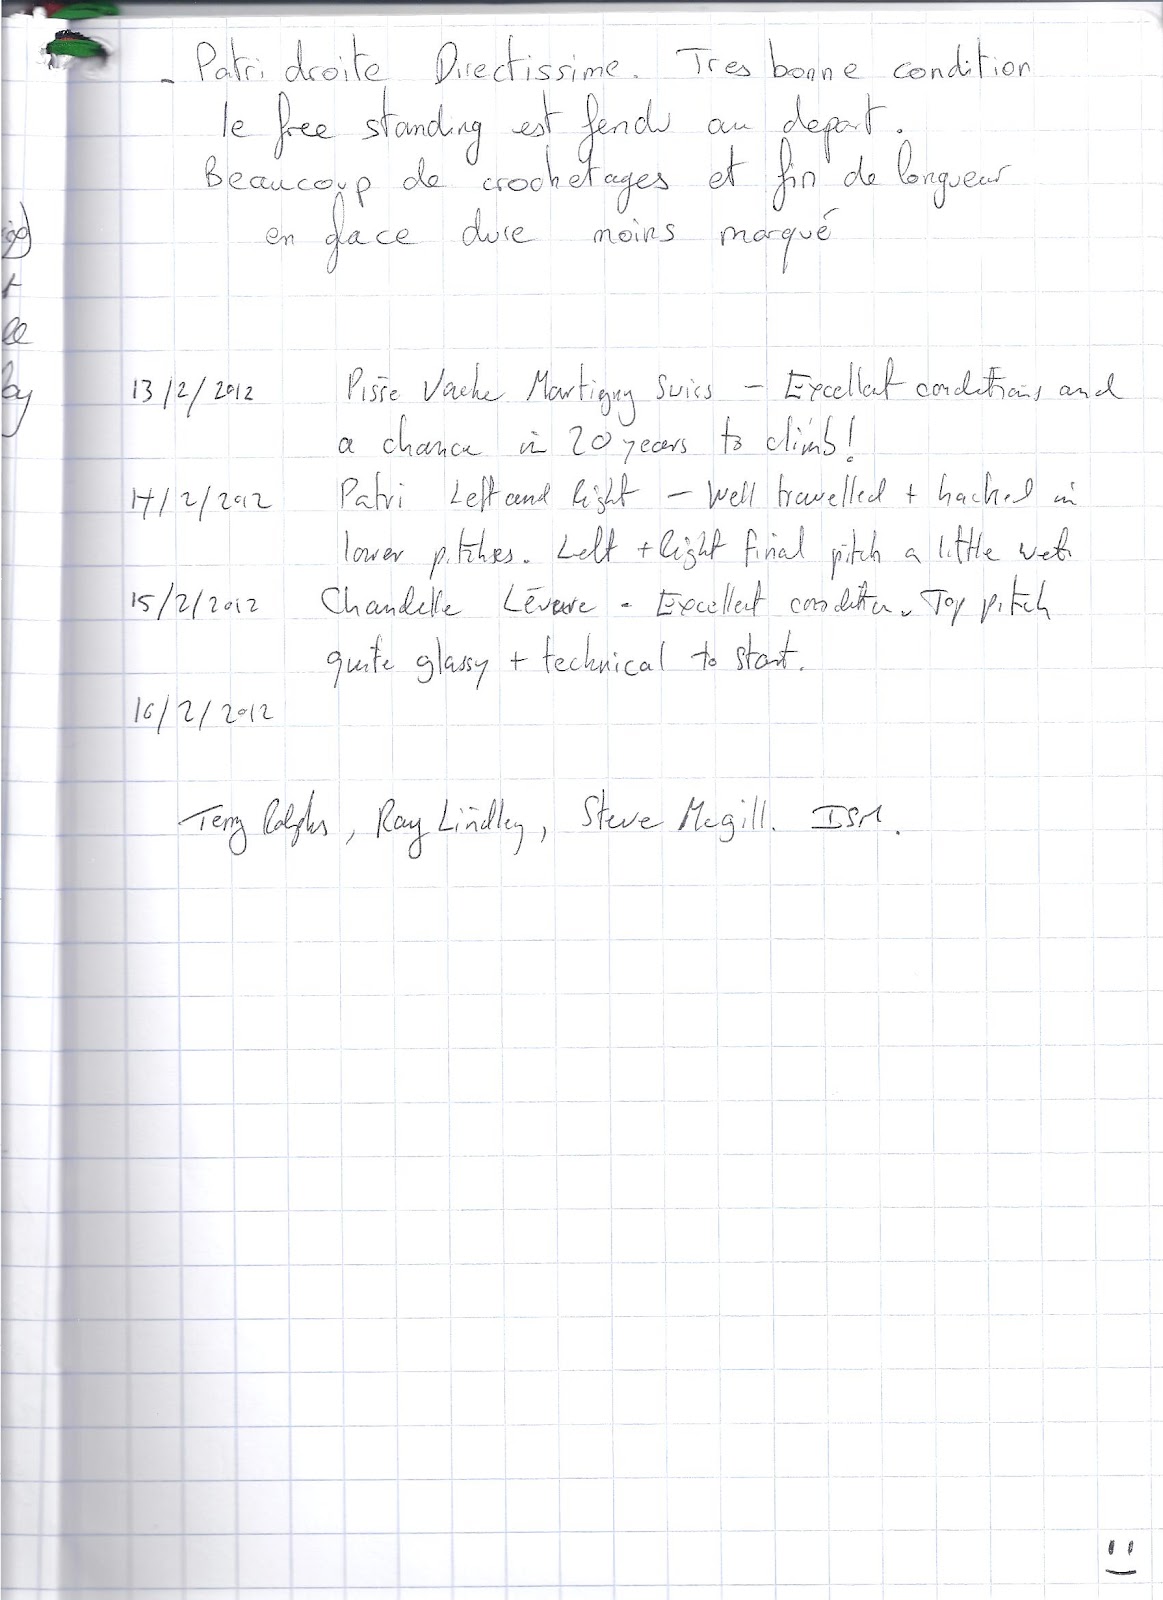 - Patri droite Directissime. Tres bonne condition
le free standing est fendu au depart.
Beaucoup de crochetages et fin de longueur
en glace dure moins marqué
13/2/2012 Pisse Vache Martigny Suiss - Excellent conditions and
a chance in 20 years to climb!
14/2/2012 Patri Left and Right - Well travelled + hacked in
lower pitches. Left + Right final pitch a little wet.
15/2/2012 Chandelle Lévure - Excellent condition. Top pitch
quite glassy + technical to start.
16/2/2012
Terry Ralphs, Ray Lindley, Steve Mcgill. ISM.